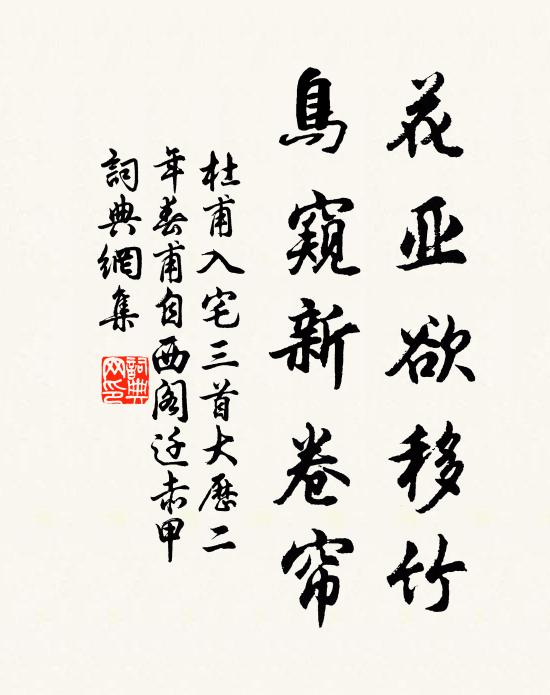 花亚欲移竹
鳥窺新卷帘
杜甫入宅三首大歷二
年春甫自西阁迁赤甲
詞典網集
詞典
网印